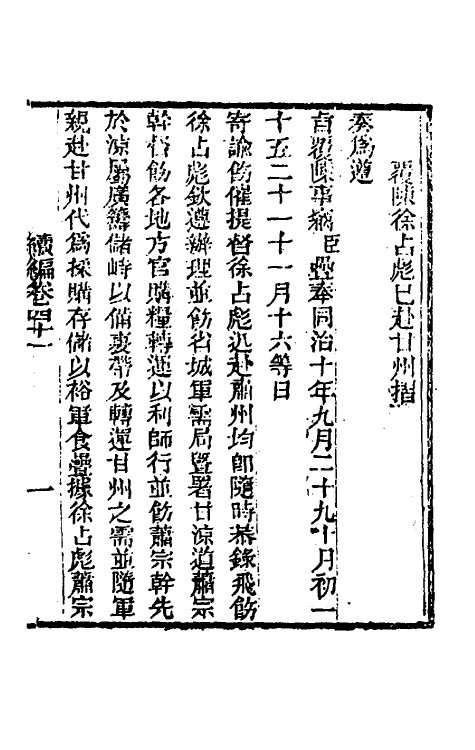 覆陳徐占彪已赴甘州摺
奏爲遵
旨覆陳事竊臣疊奉同治十年九月二十九十月初一
十五二十一十一月十六等日
寄諭飭催提督徐占彪迅赴肅州均卽隨時恭錄飛飭
徐占彪欽遵辦理並飭省城軍需局暨署甘凉道蕭宗
幹督飭各地方官購糧轉運以利師行並飭蕭宗幹先
於凉屬廣籌儲峙以備裹帶及轉運甘州之需並隨軍
親赴甘州代爲採購存儲以裕軍食疊據徐占彪蕭宗
續編卷四十一 一